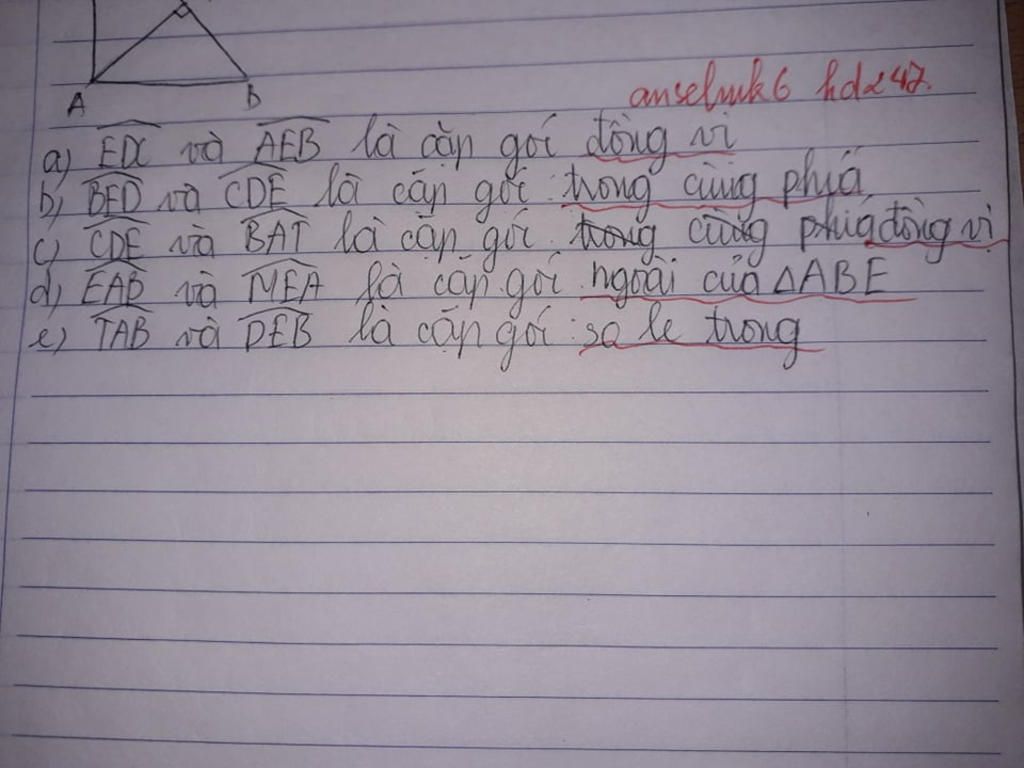 A B
anselmk6 hd247.
a) EDC và AEB là cặp gói đồng vị
b) BED và CDE là cặp gói : trong cùng phía
c) CDE và BAT là cặp gói trong cùng phía đồng vị
d) EAB và MEA là cặp gói ngoài của ΔABE
e) TAB và DEB là cặp gói : so le trong